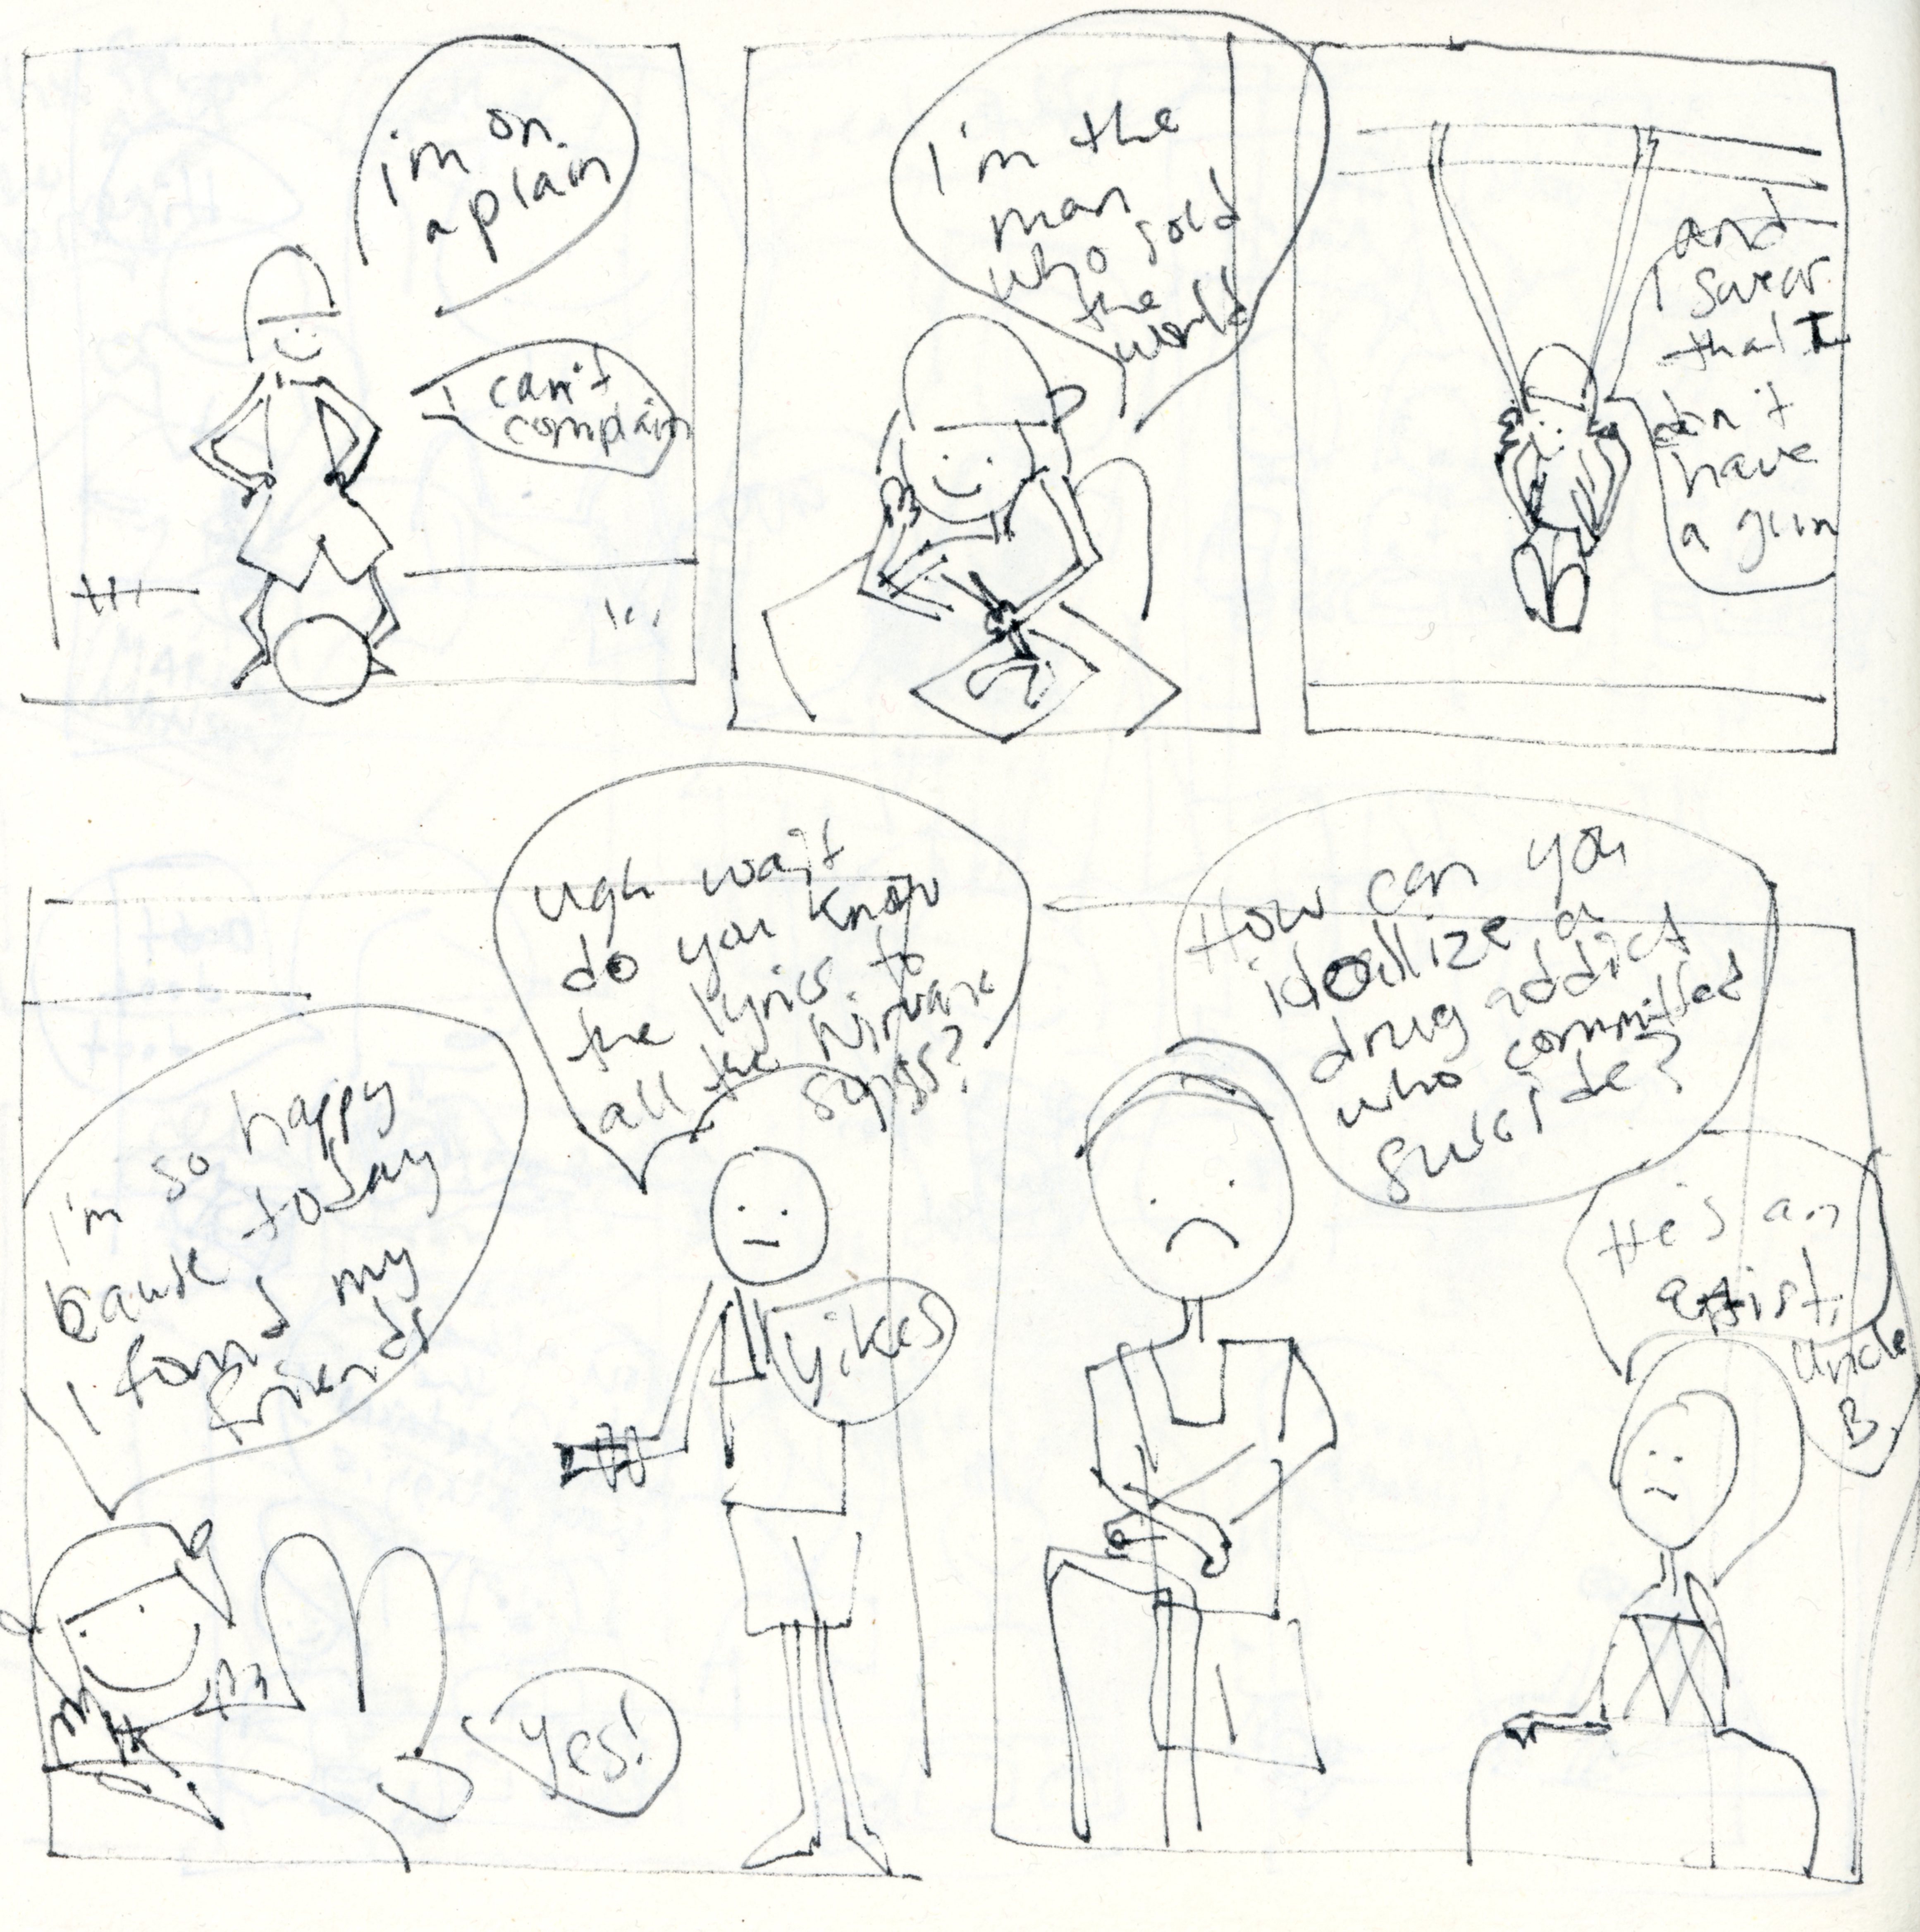 i'm on
a plain
I can't
complain
I'm the
man
who sold
the
world
and
I swear
that I
don't
have
a gun
I'm so happy
cause today
I found my
friends
ugh wait
do you know
the lyrics to
all the Nirvana
songs?
yikes
yes!
How can you
idealize a
drug addict
who committed
suicide?
He's an
artist,
Uncle
B.